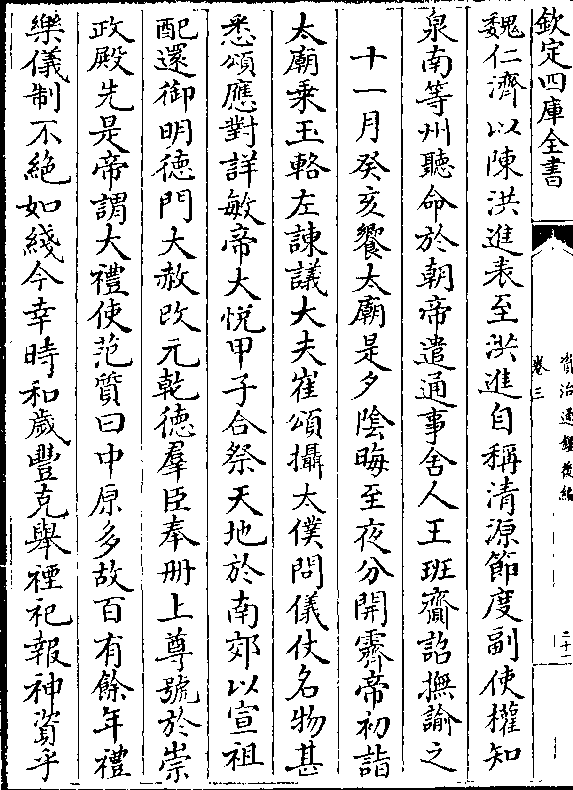 欽定四庫全書
資治通鑑後編
卷三
二十一
魏仁濟以陳洪進表至洪進自稱清源節度副使權知
泉南等州聽命於朝帝遣通事舍人王班齎詔撫諭之
十一月癸亥饗太廟是夕陰晦至夜分開霽帝初詣
太廟乘玉輅左諫議大夫崔頌攝太僕問儀仗名物甚
悉頌應對詳敏帝大悅甲子合祭天地於南郊以宣祖
配還御明德門大赦改元乾德羣臣奉册上尊號於崇
政殿先是帝謂大禮使范質曰中原多故百有餘年禮
樂儀制不絶如綫今幸時和歲豐克舉禋祀報神資乎